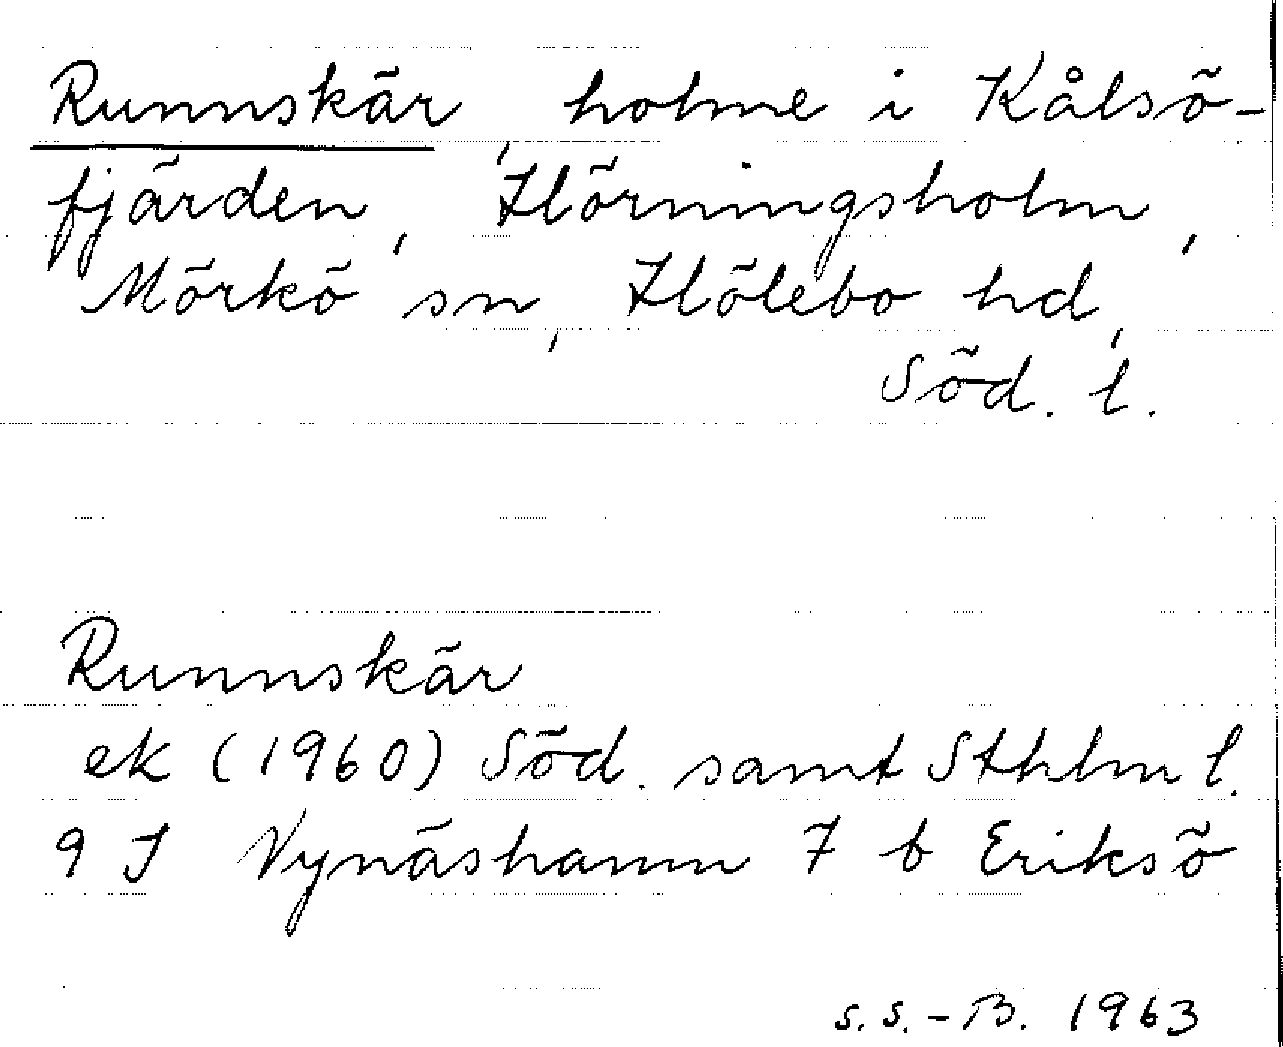 Runnskär, holme i Kålsö-
fjärden, Hörningsholm,
Mörkö sn, Hölebo hd,
Söd. l.
Runnskär
ek (1960) Söd. samt Sthlm l.
9 I Nynäshamn 7 b Eriksö
s.s.-B. 1963